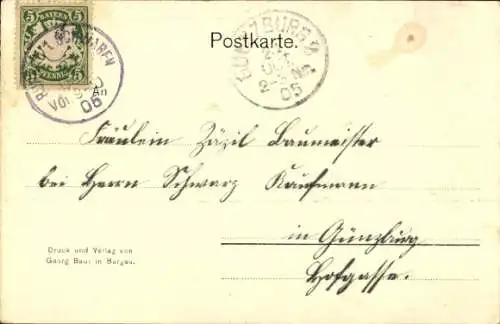 5 BAYERN 5
PFENNIG
Postkarte.
GÜNZBURG
05
05
An
Fräulein Zäzil Baumeister
bei Herrn Schwarz Kaufmann
in Günzburg
Hofgasse.
Druck und Verlag von
Georg Baur in Burgau.